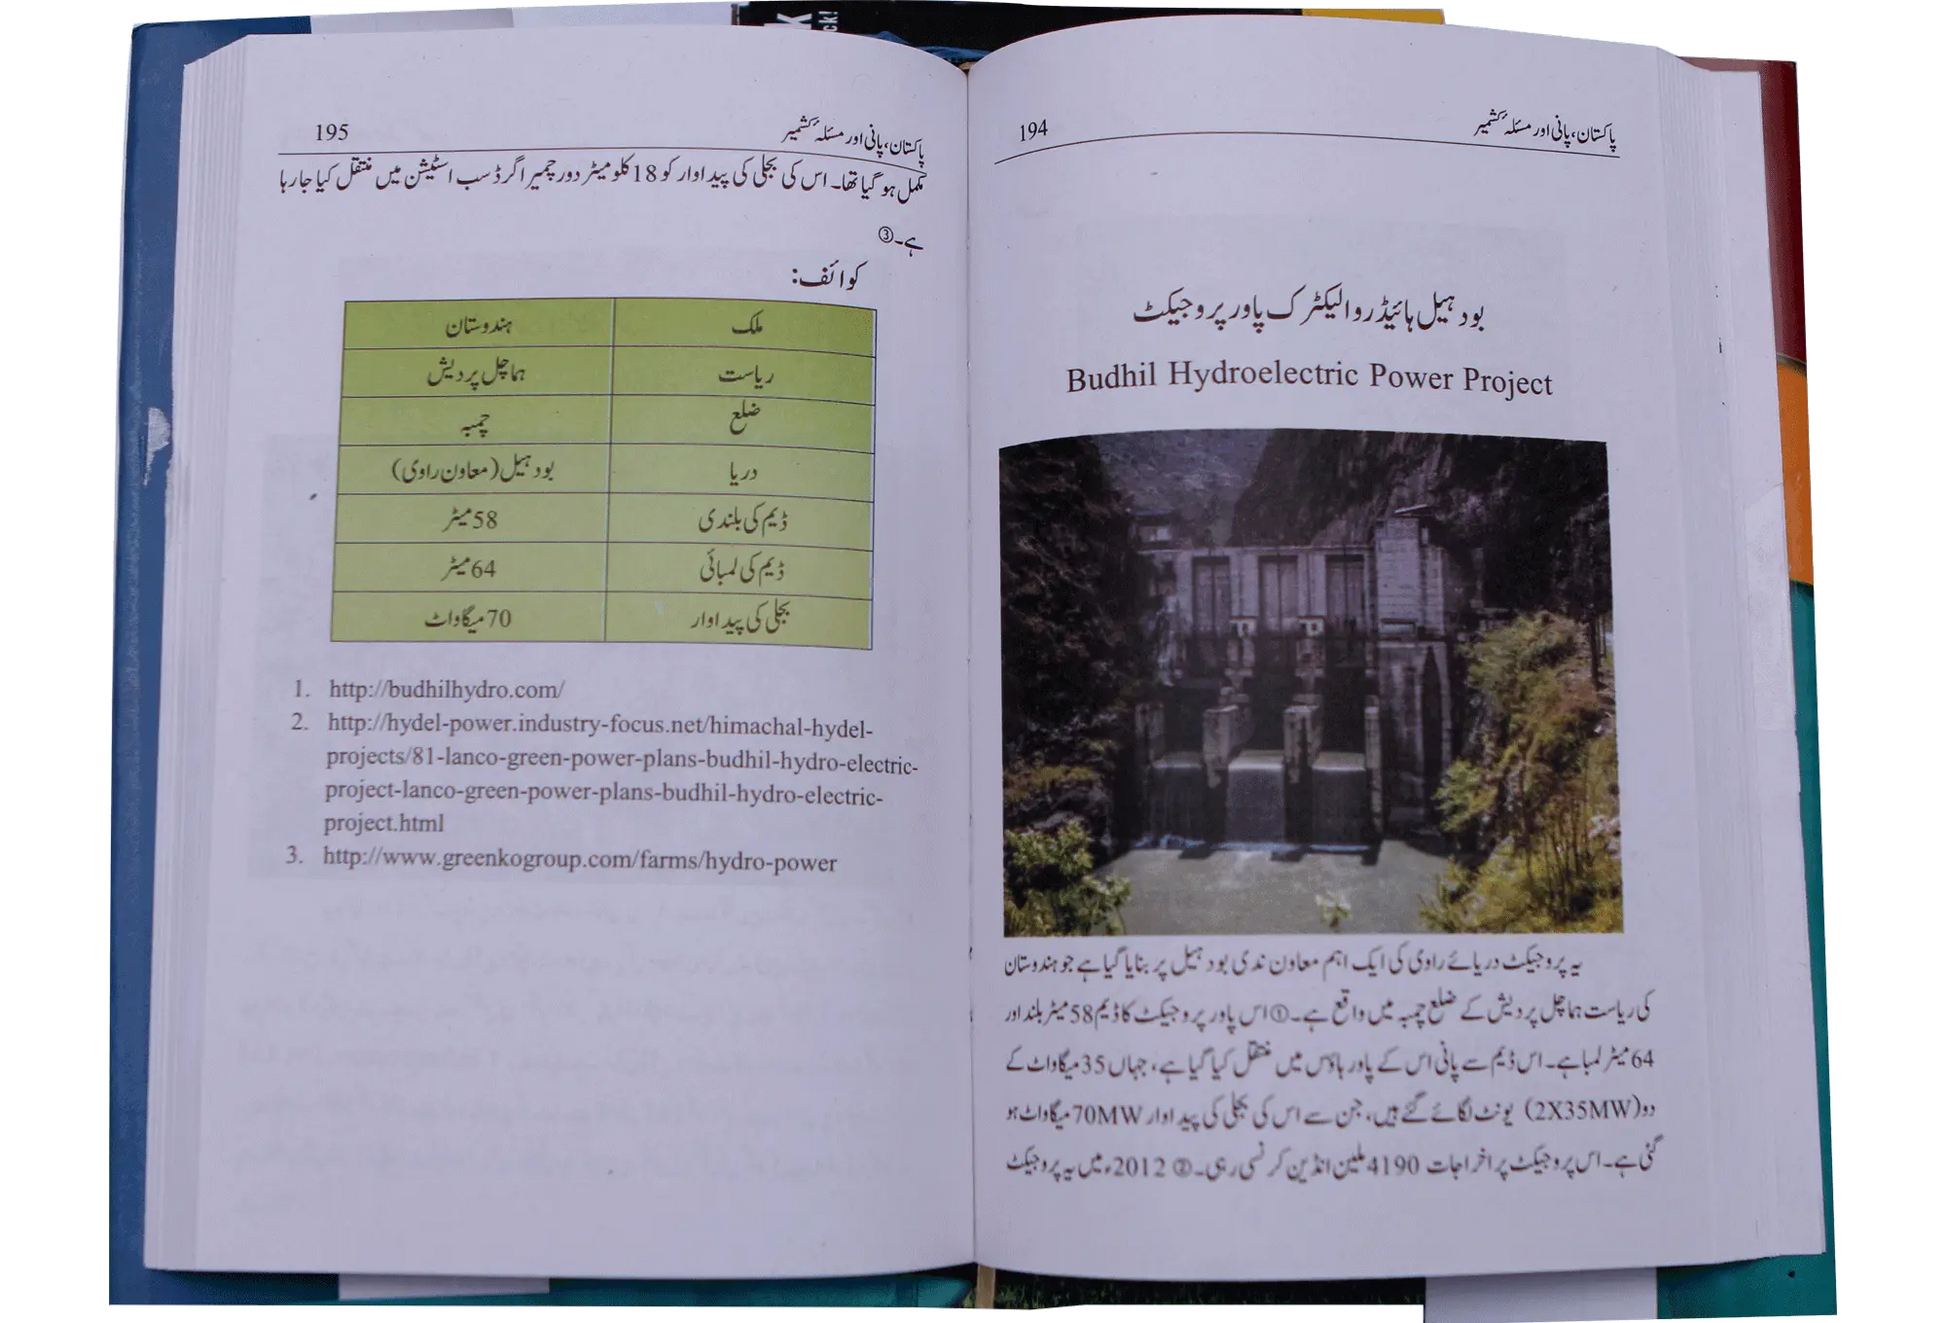 پاکستان، پانی اور مسئلہ کشمیر
194
بودہیل ہائیڈرو الیکٹرک پاور پروجیکٹ
Budhil Hydroelectric Power Project
یہ پروجیکٹ دریائے راوی کی ایک اہم معاون ندی بودہیل پر بنایا گیا ہے جو ہندوستان
کی ریاست ہماچل پردیش کے ضلع چمبہ میں واقع ہے۔① اس پاور پروجیکٹ کا ڈیم 58 میٹر بلند اور
64 میٹر لمبا ہے۔ اس ڈیم سے پانی اس کے پاور ہاؤس میں منتقل کیا گیا ہے، جہاں 35 میگاواٹ کے
دو (2X35MW) یونٹ لگائے گئے ہیں، جن سے اس کی بجلی کی پیداوار 70MW میگاواٹ ہو
گئی ہے۔ اس پروجیکٹ پر اخراجات 4190 ملین انڈین کرنسی رہی۔② 2012ء میں یہ پروجیکٹ
پاکستان، پانی اور مسئلہ کشمیر
195
مکمل ہو گیا تھا۔ اس کی بجلی کی پیداوار کو 18 کلو میٹر دور چمیرا گرڈ سب اسٹیشن میں منتقل کیا جا رہا
ہے۔③
کوائف:
ملک ہندوستان
ریاست ہماچل پردیش
ضلع چمبہ
دریا بودہیل (معاون راوی)
ڈیم کی بلندی 58 میٹر
ڈیم کی لمبائی 64 میٹر
بجلی کی پیداوار 70 میگاواٹ
1. http://budhilhydro.com/
2. http://hydel-power.industry-focus.net/himachal-hydel-
projects/81-lanco-green-power-plans-budhil-hydro-electric-
project-lanco-green-power-plans-budhil-hydro-electric-
project.html
3. http://www.greenkogroup.com/farms/hydro-power